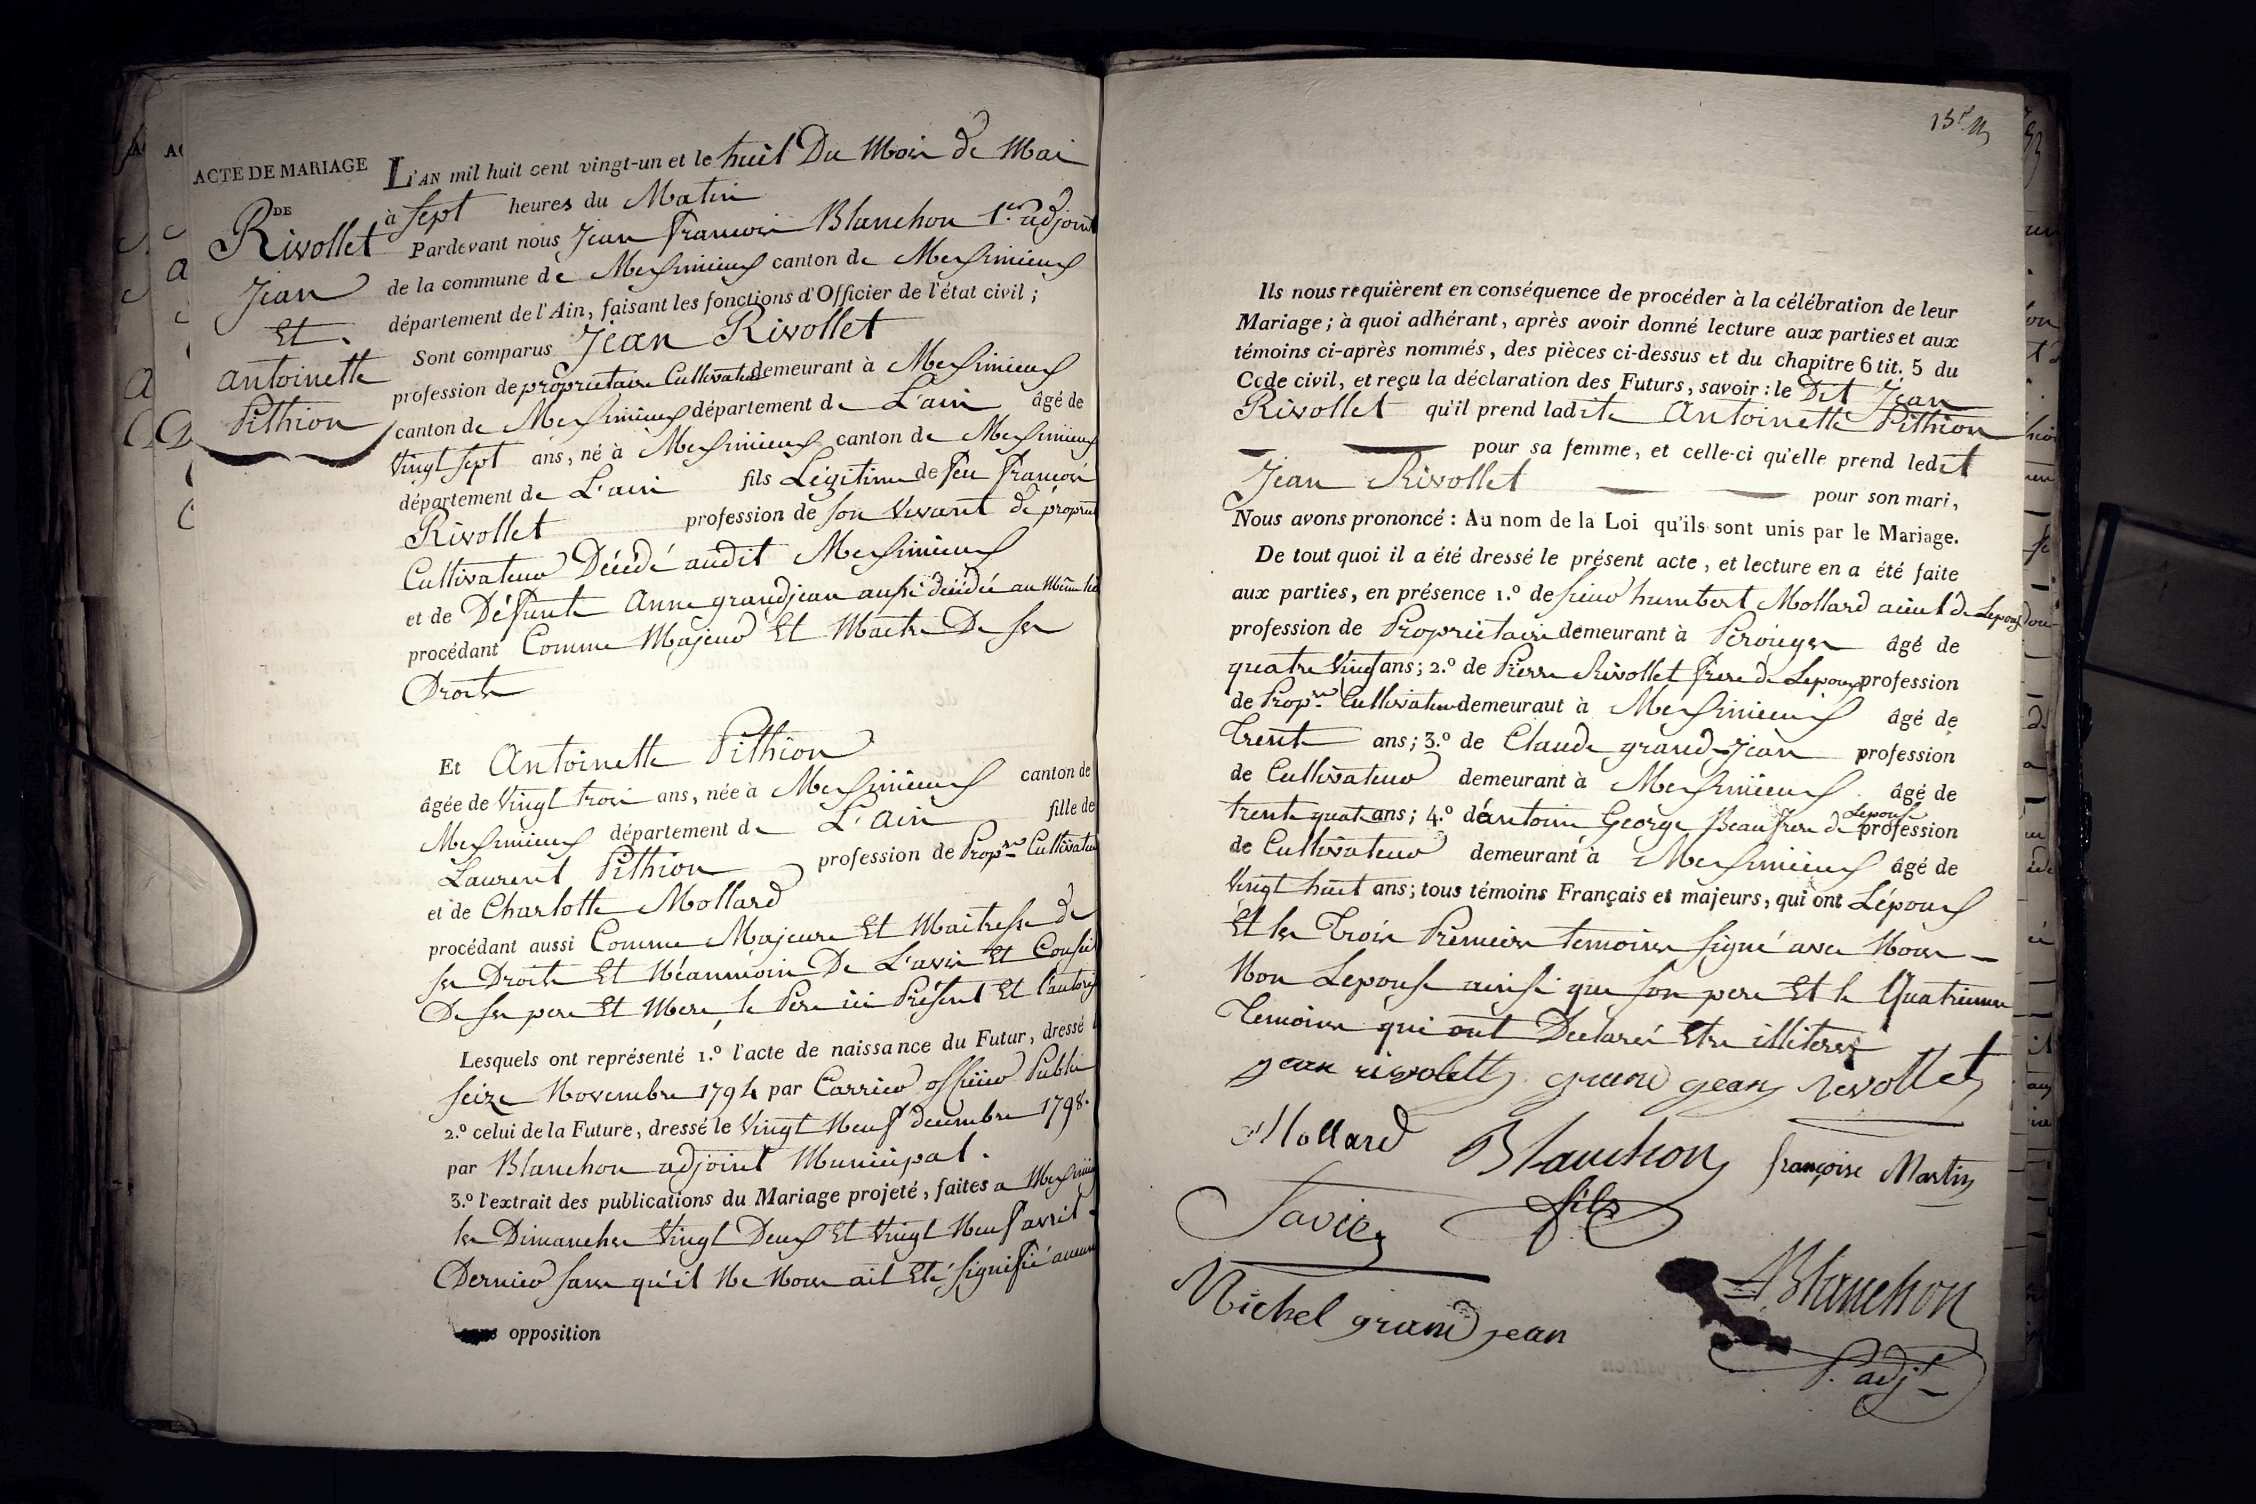 ACTE DE MARIAGE
DE
Rivollet
Jean
Et
antoinette
Pithion
L'AN mil huit cent vingt-un et le huit Du Mois de Mai
à Sept heures du Matin
Pardevant nous Jean françois Blanchon 1.er adjoint
de la commune de Meximieux canton de Meximieux
département de l'Ain, faisant les fonctions d'Officier de l'état civil ;
Sont comparus Jean Rivollet
profession de propriétaire Cultivateur demeurant à Meximieux
canton de Meximieux département de L'ain âgé de
Vingt Sept ans, né à Meximieux canton de Meximieux
département de L'ain fils Légitime de feu françois
Rivollet profession de son Vivant de propriet
Cultivateur Décédé audit Meximieux
et de Défunte Anne grandjean aussi décédée au Même lieu
procédant Comme Majeur Et Maitre De ses
Droits
Et Antoinette Pithion
âgée de Vingt trois ans, née à Meximieux canton de
Meximieux département de L'Ain fille de
Laurent Pithion profession de Prop.re Cultivateur
et de Charlotte Mollard
procédant aussi Comme Majeure Et Maitresse de
ses Droits Et Néanmoin De L'avis Et Conseil
De ses pere Et Mere, le Pere ici Présent Et l'autoris
Lesquels ont représenté 1.º l'acte de naissance du Futur, dressé l
seize Novembre 1794 par Carrier officier Public
2.º celui de la Future, dressé le Vingt Neuf decembre 1798.
par Blanchon adjoint Municipal.
3.º l'extrait des publications du Mariage projeté, faites a Meximieux
les Dimanches Vingt Deux Et Vingt Neuf avril
Dernier sans qu'il Ne Nous ait Eté signifié aucune
opposition
Ils nous requièrent en conséquence de procéder à la célébration de leur
Mariage ; à quoi adhérant, après avoir donné lecture aux parties et aux
témoins ci-après nommés, des pièces ci-dessus et du chapitre 6 tit. 5 du
Code civil, et reçu la déclaration des Futurs, savoir : le Dit Jean
Rivollet qu'il prend ladite Antoinette Pithion
pour sa femme, et celle-ci qu'elle prend ledit
Jean Rivollet pour son mari,
Nous avons prononcé : Au nom de la Loi qu'ils sont unis par le Mariage.
De tout quoi il a été dressé le présent acte, et lecture en a été faite
aux parties, en présence 1.º de sieur humbert Mollard aieul de Lepouse
profession de Propriétaire demeurant à Pérouges âgé de
quatre Vingt ans ; 2.º de Pierre Rivollet frere de Lepoux profession
de Prop.re Cultivateur demeurant à Meximieux âgé de
Trente ans ; 3.º de Claude grand-Jean profession
de Cultivateur demeurant à Meximieux âgé de
trente quatre ans ; 4.º d'antoine George Beaufrere de Lepouse profession
de Cultivateur demeurant à Meximieux âgé de
Vingt huit ans ; tous témoins Français et majeurs, qui ont L'époux
Et les Trois Premiers temoins signé avec Nous
Non Lepouse ainsi que son pere Et le Quatrieme
Temoins qui ont Déclaré Etre illiterés
jean rivolett grand jean revollet
Mollard Blanchon françoise Martin
fils
Savier
Michel grand jean
Blanchon
P. adj.t